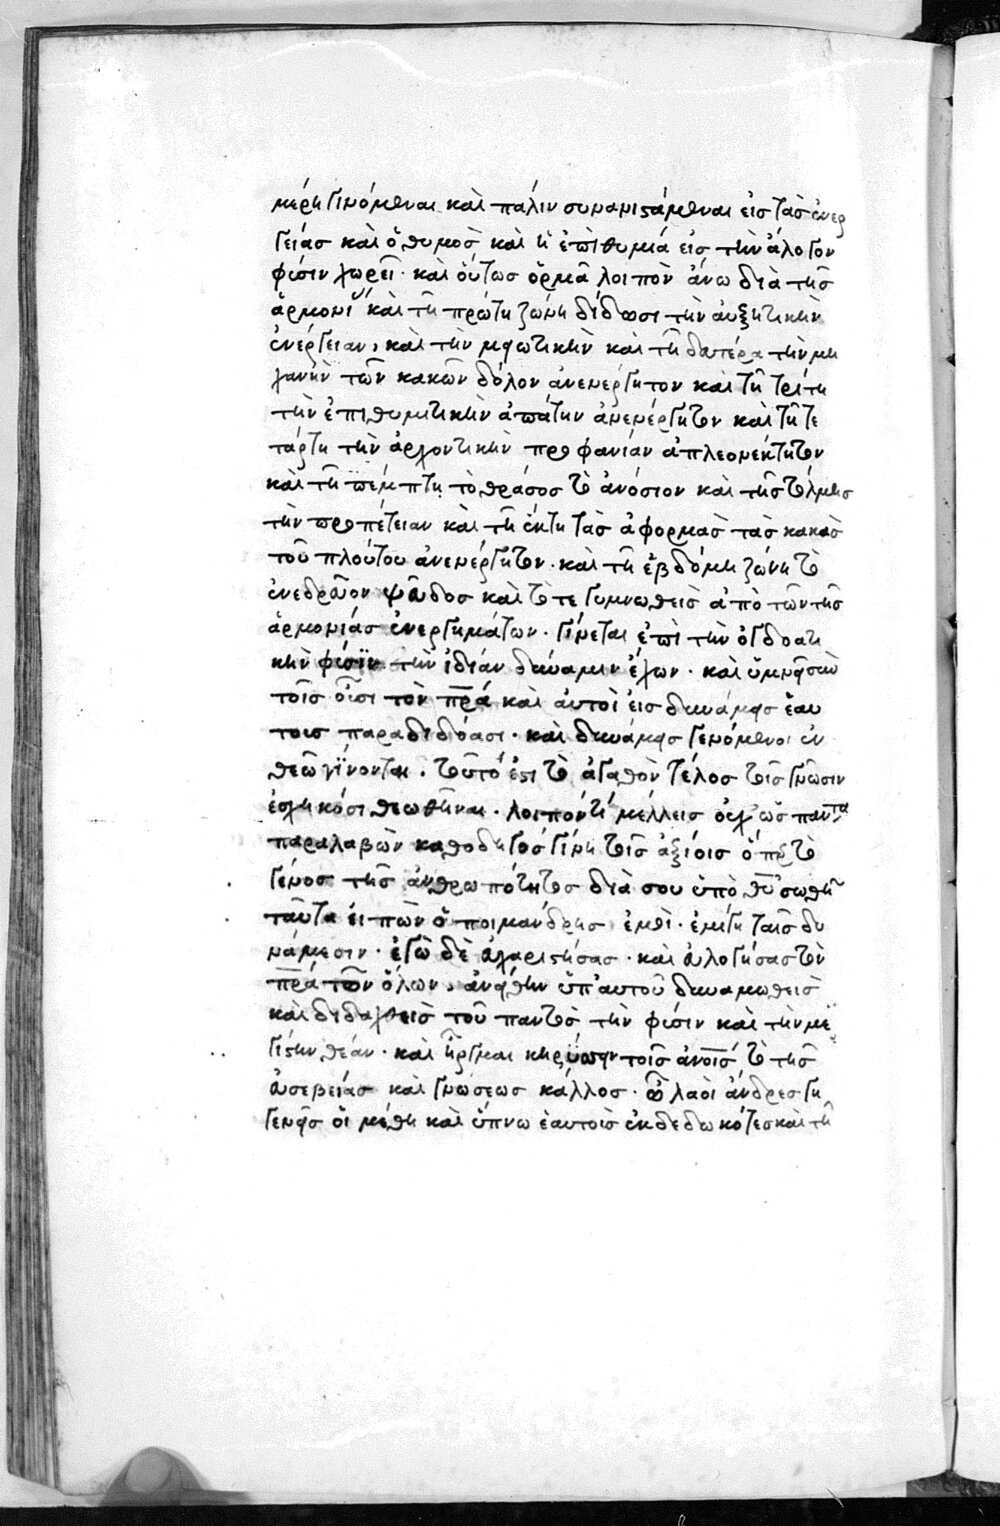 μέρη γινόμεναι καὶ πάλιν συνανιστάμεναι εἰσ τὰσ ἐνερ
γείασ καὶ ὁ θυμοσ καὶ ἡ ἐπιθυμία εἰσ τὴν ἄλογον
φύσιν χωρεῖ· καὶ οὕτωσ ὁρμᾶ λοιπὸν ἄνω διὰ τῆσ
ἁρμονί καὶ τῆ πρώτη ζώνη δίδωσι τὴν αὐξητικὴν
ἐνέργειαν, καὶ τὴν μειωτικὴν καὶ τῆ δευτέρα τὴν μη
χανὴν τῶν κακῶν δόλον ἀνενέργητον καὶ τῆ τρίτη
τὴν ἐπιθυμιτικὴν ἀπάτην ἀνενέργητον καὶ τῆ τε
τάρτη τὴν ἀρχοντικὴν προφανίαν ἀπλεονέκτητον
καὶ τῆ πέμπτη τὸ θράσοσ τὸ ἀνόσιον καὶ τῆσ τόλμησ
τὴν προπέτειαν καὶ τῆ ἕκτη τὰσ ἀφορμασ τὰσ κακὰσ
τοῦ πλούτου ἀνενέργητον· καὶ τῆ ἑβδόμη ζώνη τὸ
ἐνεδρεῦον ψεῦδοσ καὶ τότε γυμνωθεὶσ ἀπὸ τῶν τῆσ
ἁρμονίασ ἐνεργημάτων· γίνεται ἐπὶ τὴν ὀγδοατι
κὴν φύσϊν τὴν ἰδίαν δύναμιν ἔχων· καὶ ὑμνεῖ σὺν
τοῖσ οὖσι τὸν πρα καὶ αὐτοὶ εἰσ δυνάμεισ ἑαυ
τοισ παραδιδόασι· καὶ δυνάμεισ γενόμενοι ἐν
θεῶ γίνονται· τοῦτό ἐστι τὸ ἀγαθὸν τέλοσ τοῖσ γνῶσιν
ἐσχηκόσι θεωθῆναι· λοιπόν τί μέλλεισ οὐχ ὡσ παντα
παραλαβὼν καθοδηγόσ γίνη τοῖσ ἀξίοισ ὅπωσ τὸ
γένοσ τῆσ ἀνθρωπότητοσ διὰ σου ὑπὸ θυ σωθῆ
ταῦτα εἰπὼν ὁ ποιμάνδρησ ἐμοὶ· ἐμίγη ταῖσ δυ
νάμεσιν· ἐγὼ δὲ εὐχαριστήσασ· καὶ εὐλογήσασ τὸν
πρα τῶν ὅλων, ἀνείθην ὑπ' αὐτοῦ δυναμωθεισ
καὶ διδαχθεὶσ τοῦ παντὸσ τὴν φύσιν καὶ τὴν με
γίστην θέαν· καὶ ἦργμαι κηρύσσειν τοῖσ ἀνοισ τὸ τῆσ
εὐσεβείασ καὶ γνώσεωσ κάλλοσ· ὦ λαοὶ ἄνδρεσ γη
γενεῖσ οἱ μέθη καὶ ὕπνω ἑαυτοισ ἐκδεδωκότεσ καὶ τῆ